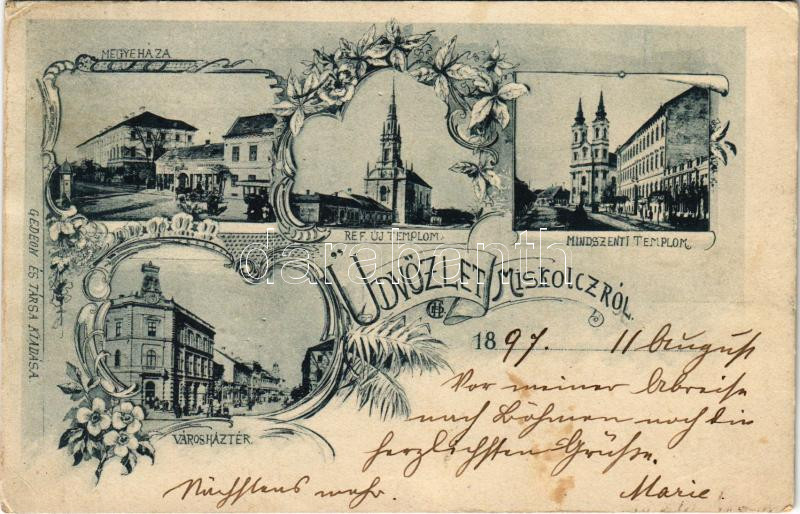 MEGYEHÁZA
REF. ÚJ TEMPLOM.
MINDSZENTI TEMPLOM.
GEDEON ÉS TÁRSA KIADÁSA.
darabanth
ÜDVÖZLET MISKOLCZRÓL.
1897. 11 August
Vor meiner Abreise
nach Böhmen noch die
herzlichsten Grüße.
Nächstens mehr. Marie.
VÁROSHÁZTÉR.